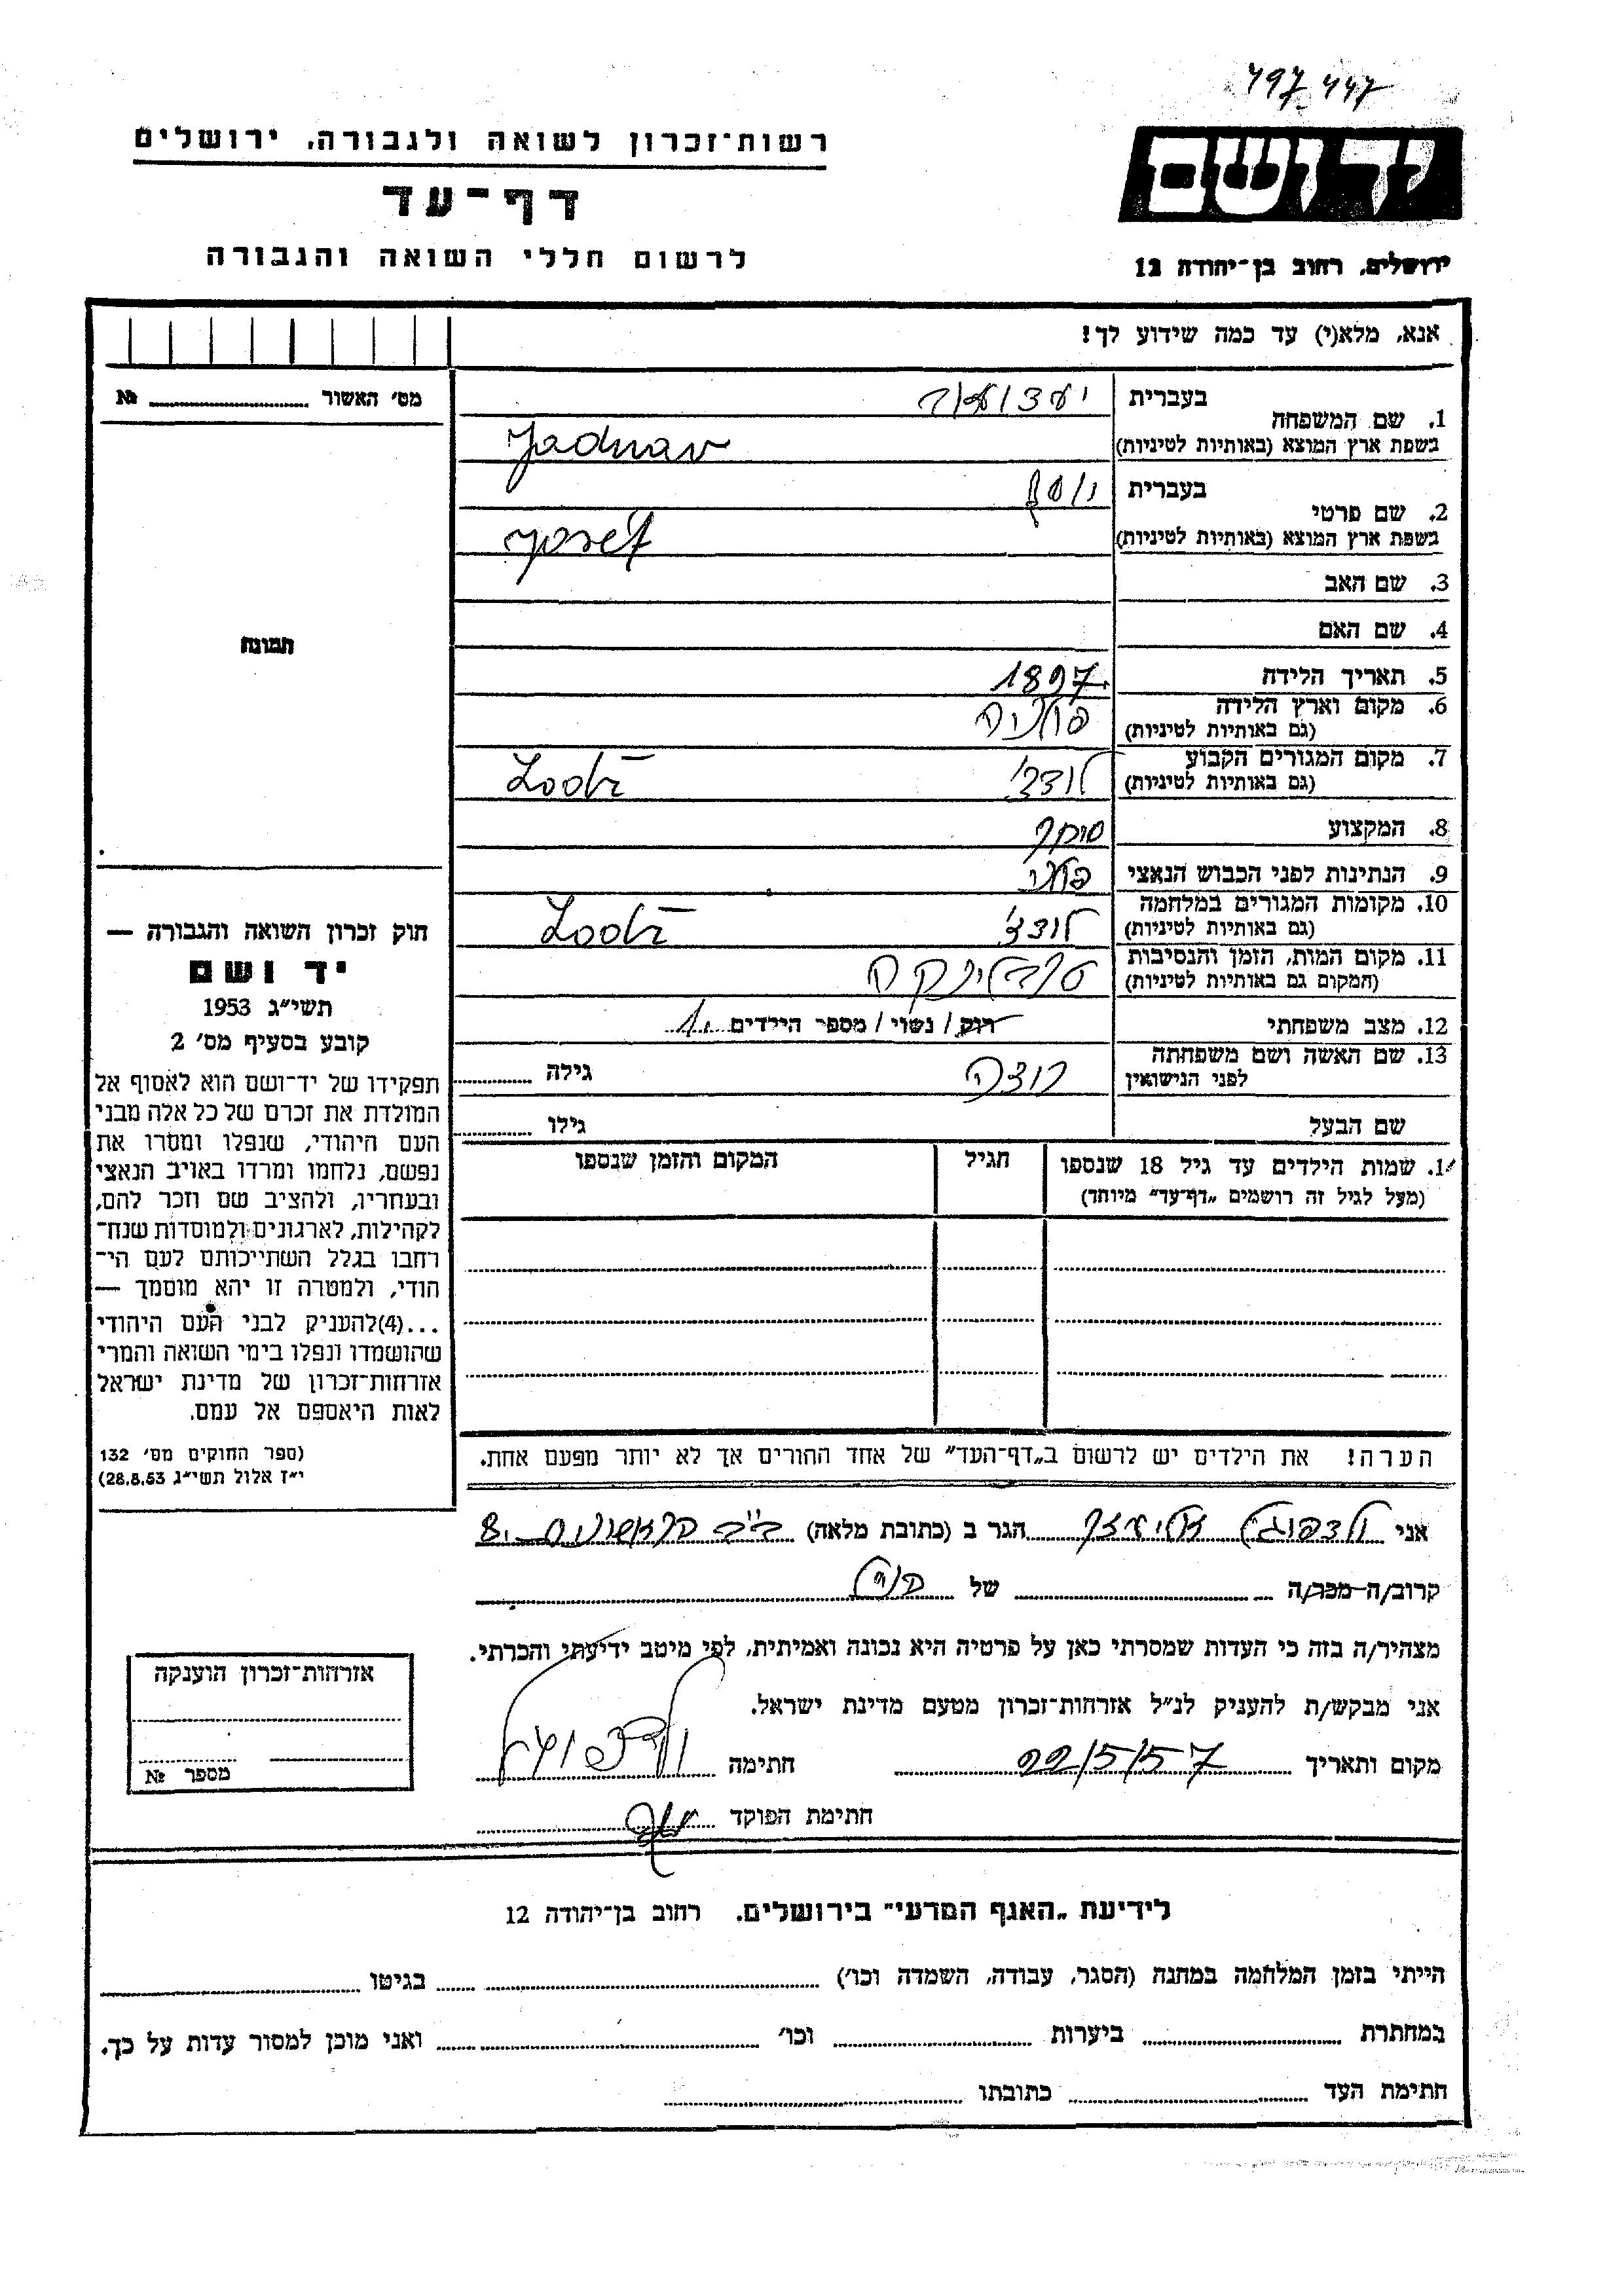 497 447
רשות־זכרון לשואה ולגבורה, ירושלים
דף־עד
לרשום חללי השואה והגבורה
יד ושם
ירושלים, רחוב בן־יהודה 12
אנא, מלא(י) עד כמה שידוע לך!
מס׳ האשור №
1. שם המשפחה
בעברית
בשפת ארץ המוצא (באותיות לטיניות)
Jadnav
2. שם פרטי
בעברית יוסף
בשפת ארץ המוצא (באותיות לטיניות) Josef
3. שם האב
4. שם האם
תמונה
5. תאריך הלידה 1897
6. מקום וארץ הלידה פולניה
(גם באותיות לטיניות)
7. מקום המגורים הקבוע לודז׳ Lodz
(גם באותיות לטיניות)
8. המקצוע סוחר
9. הנתינות לפני הכבוש הנאצי פולני
10. מקומות המגורים במלחמה לודז׳ Lodz
(גם באותיות לטיניות)
11. מקום המות, הזמן והנסיבות טרבלינקה
(המקום גם באותיות לטיניות)
12. מצב משפחתי רוק / נשוי / מספר הילדים 1
13. שם האשה ושם משפחתה
לפני הנישואין גילה
שם הבעל גילו
14. שמות הילדים עד גיל 18 שנספו הגיל המקום והזמן שנספו
(מעל לגיל זה רושמים „דף־עד״ מיוחד)
הערה! את הילדים יש לרשום ב„דף־העד״ של אחד ההורים אך לא יותר מפעם אחת.
חוק זכרון השואה והגבורה —
יד ושם
תשי״ג 1953
קובע בסעיף מס׳ 2
תפקידו של יד־ושם הוא לאסוף אל
המולדת את זכרם של כל אלה מבני
העם היהודי, שנפלו ומסרו את
נפשם, נלחמו ומרדו באויב הנאצי
ובעוזריו, ולהציב שם וזכר להם,
לקהילות, לארגונים ולמוסדות שנח־
רבו בגלל השתייכותם לעם הי־
הודי, ולמטרה זו יהא מוסמך —
...(4)להעניק לבני העם היהודי
שהושמדו ונפלו בימי השואה והמרי
אזרחות־זכרון של מדינת ישראל
לאות היאספם אל עמם.
(ספר החוקים מס׳ 132
י״ז אלול תשי״ג 28.8.53)
אני הגר ב (כתובת מלאה) 8
קרוב/ה מכר/ה של
מצהיר/ה בזה כי העדות שמסרתי כאן על פרטיה היא נכונה ואמיתית, לפי מיטב ידיעתי והכרתי.
אני מבקש/ת להעניק לנ״ל אזרחות־זכרון מטעם מדינת ישראל.
מקום ותאריך 22/5/57 חתימה
חתימת הפוקד
אזרחות־זכרון הוענקה
מספר №
לידיעת „האגף המדעי״ בירושלים. רחוב בן־יהודה 12
הייתי בזמן המלחמה במחנה (הסגר, עבודה, השמדה וכו׳) בגיטו
במחתרת ביערות וכו׳ ואני מוכן למסור עדות על כך.
חתימת העד כתובתו